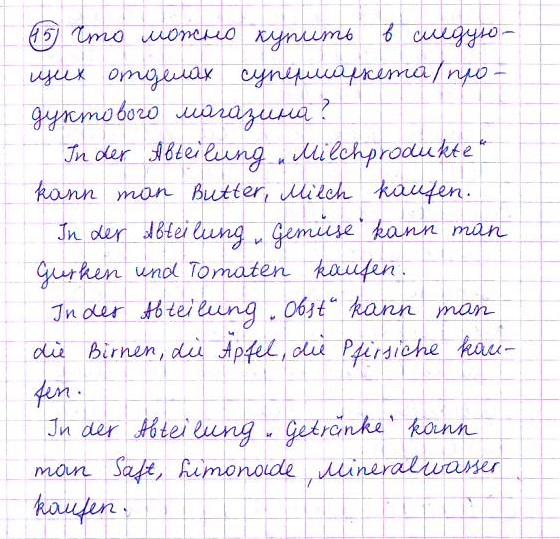 15 Что можно купить в следую-
щих отделах супермаркета/про-
дуктового магазина?
In der Abteilung „Milchprodukte"
kann man Butter, Milch kaufen.
In der Abteilung „Gemüse" kann man
Gurken und Tomaten kaufen.
In der Abteilung „Obst" kann man
die Birnen, die Äpfel, die Pfirsiche kau-
fen.
In der Abteilung „Getränke" kann
man Saft, Limonade, Mineralwasser
kaufen.